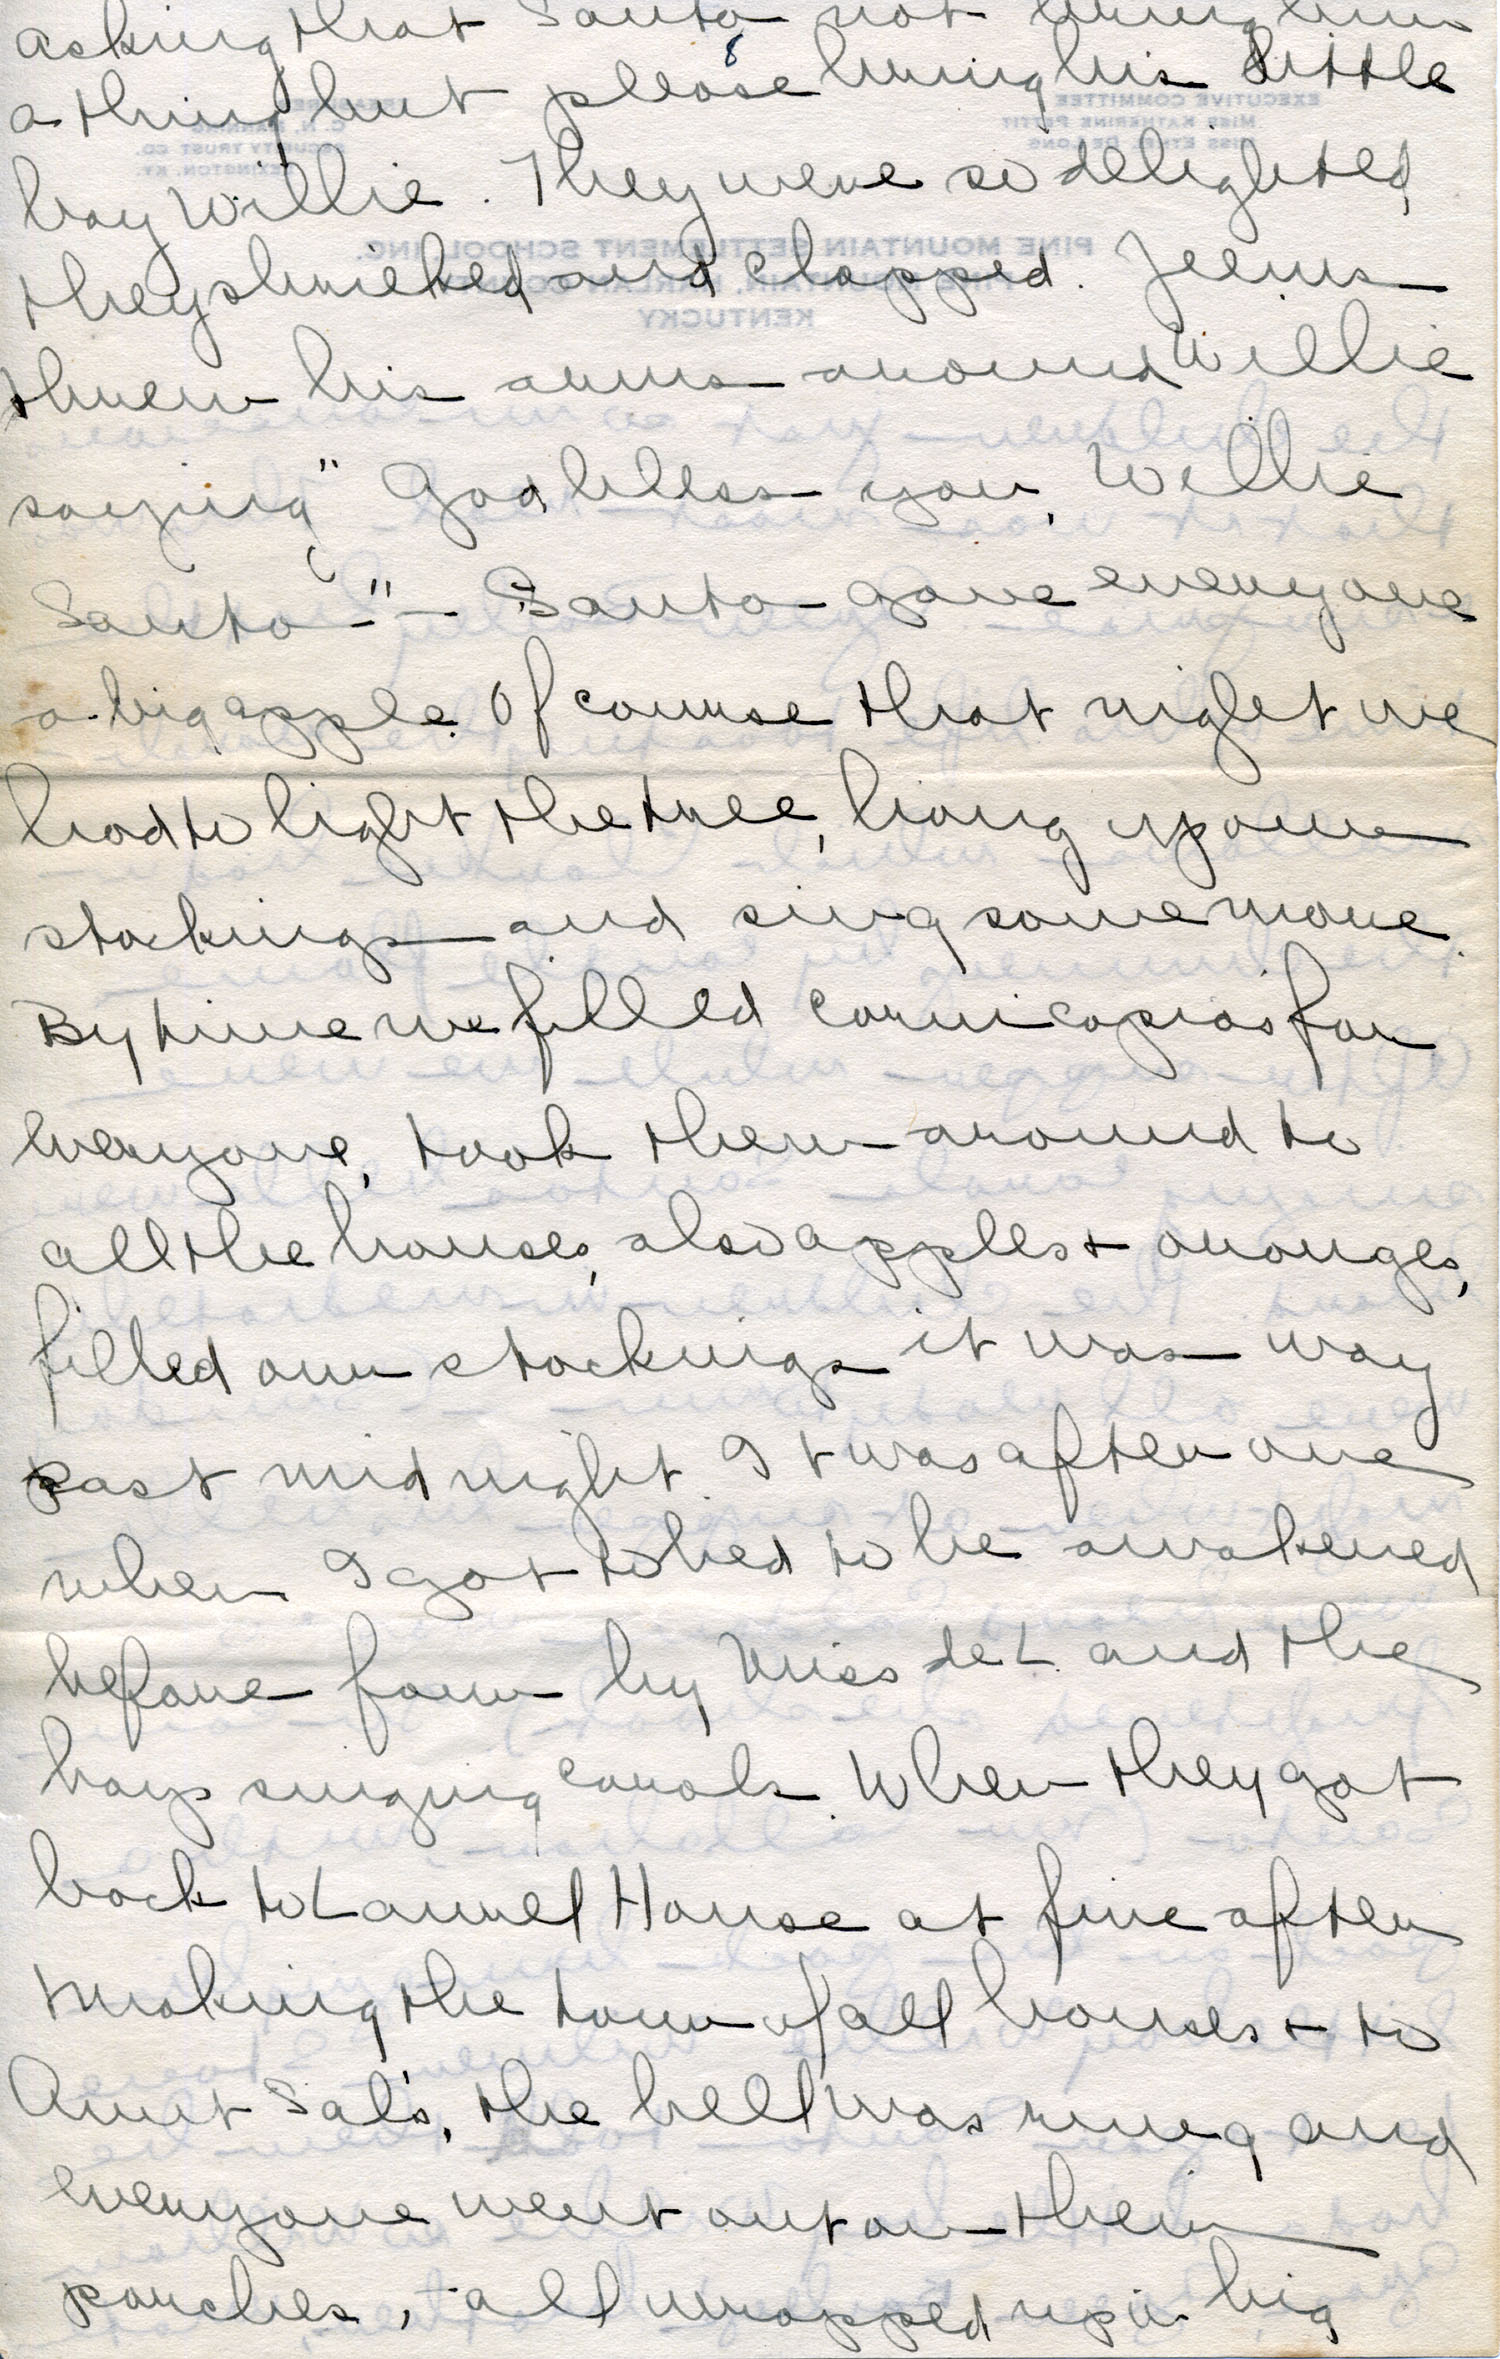 asking that Santa not bring him
a thing but please bring his little
boy Willie. They were so delighted,
they shrieked and clapped. Jeems
threw his arms around Willie
saying, "God bless you, Willie
Santa-"- Santa gave everyone
a big apple. Of course that night we
had to light the tree, hang up our
stockings and sing some more.
By time we filled cornicopias for
everyone, took them around to
all the houses, also apples + oranges,
filled our stockings it was way
past midnight. It was after one
when I got to bed to be awakened
before four by Miss de L. and the
boys singing carols. When they got
back to Laurel House at five after
making the tour of all houses + to
Aunt Sal's, the bell was rung and
everyone went out on their
porches, all wrapped up in big
EXECUTIVE COMMITTEE
MISS KATHERINE PETTIT
MISS ETHEL DE LONG
TREASURER
C. N. MANNING
SECURITY TRUST CO.
LEXINGTON, KY.
PINE MOUNTAIN SETTLEMENT SCHOOL INC.
PINE MOUNTAIN, HARLAN COUNTY
KENTUCKY